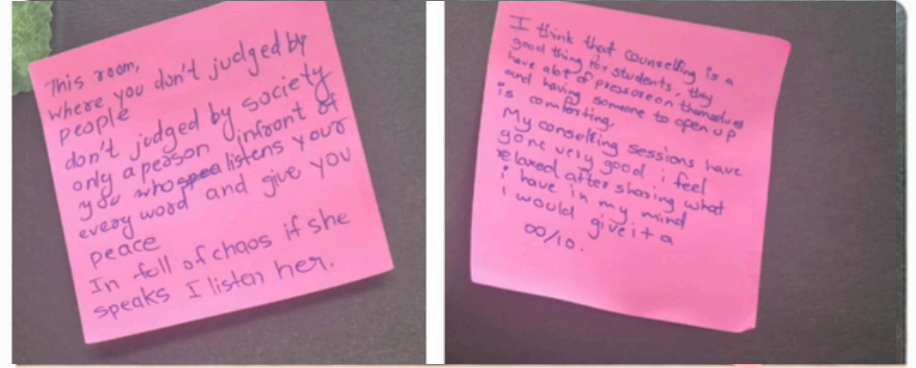 This room,
where you don't judged by
people
don't judged by society
only a person infront of
you who listens your
every word and give you
peace
In full of chaos if she
speaks I listen her.
I think that counselling is a
good thing for students, they
have alot of pressure on themselves
and having someone to open up
is comforting.
My conselling sessions have
gone very good i feel
relaxed after sharing what
i have in my mind
i would give it a
∞/10.